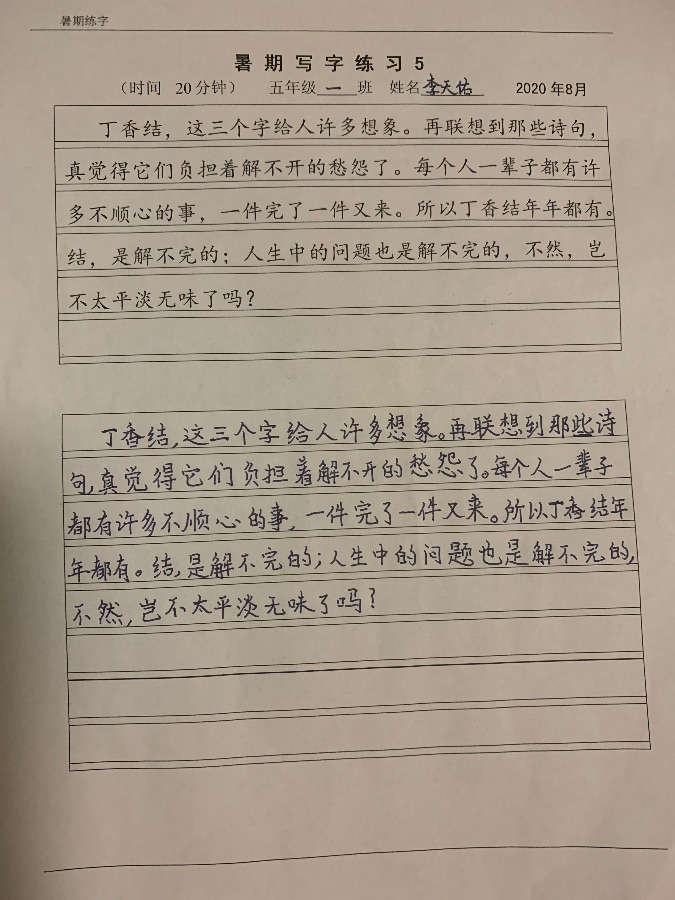 暑期练字
暑期写字练习5
（时间 20分钟） 五年级 一 班 姓名 李天佑 2020年8月
丁香结，这三个字给人许多想象。再联想到那些诗句，
真觉得它们负担着解不开的愁怨了。每个人一辈子都有许
多不顺心的事，一件完了一件又来。所以丁香结年年都有。
结，是解不完的；人生中的问题也是解不完的，不然，岂
不太平淡无味了吗？
丁香结，这三个字给人许多想象。再联想到那些诗
句，真觉得它们负担着解不开的愁怨了。每个人一辈子
都有许多不顺心的事，一件完了一件又来。所以丁香结年
年都有。结，是解不完的；人生中的问题也是解不完的，
不然，岂不太平淡无味了吗？